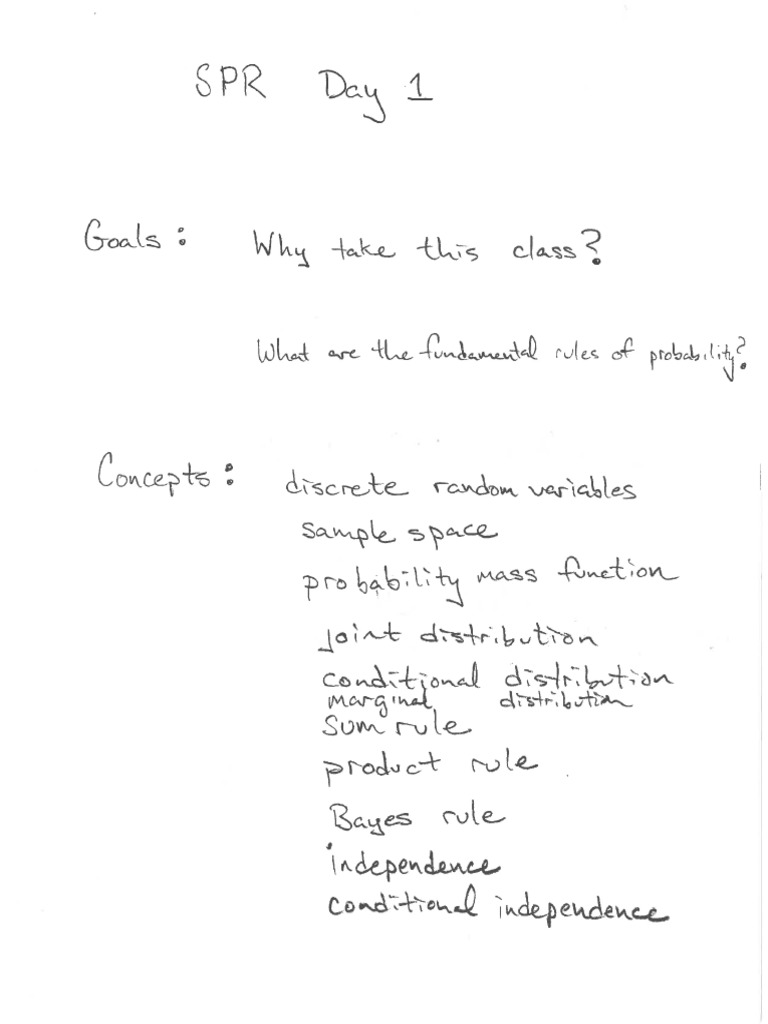 SPR Day 1
Goals: Why take this class?
What are the fundamental rules of probability?
Concepts: discrete random variables
sample space
probability mass function
joint distribution
conditional distribution
marginal distribution
sum rule
product rule
Bayes rule
independence
conditional independence